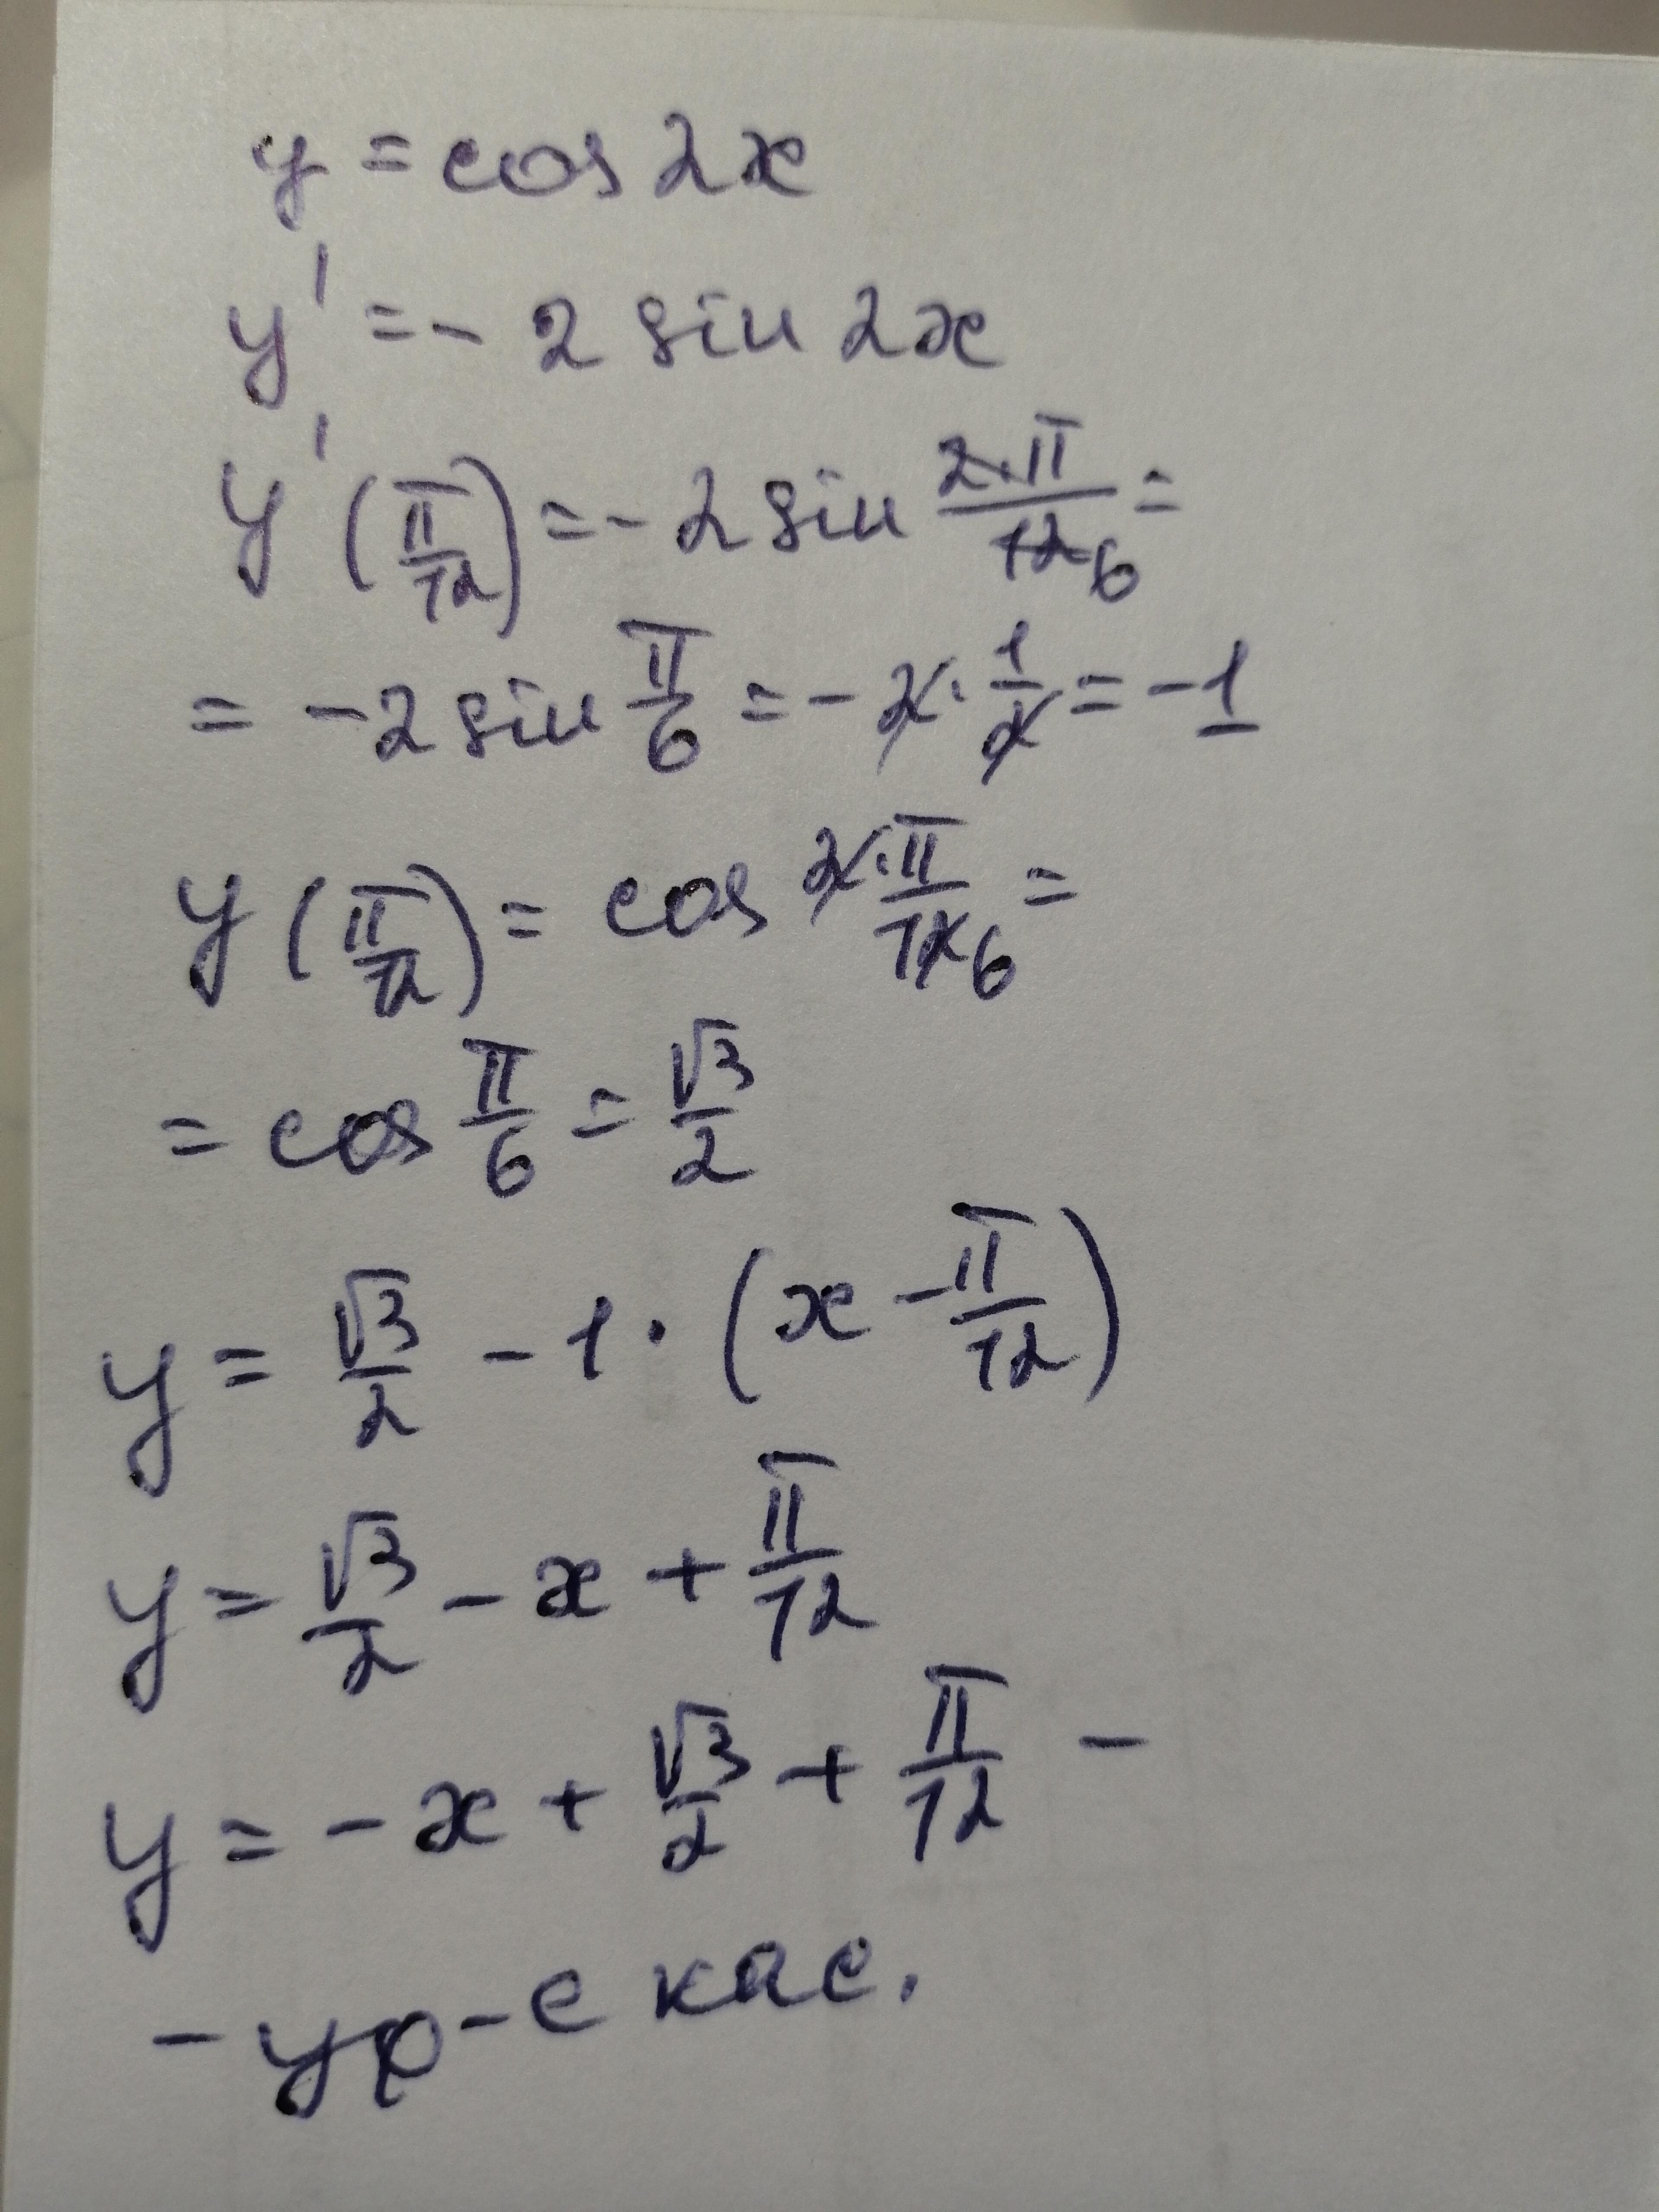 y = cos 2x
y' = - 2 sin 2x
y' (π/12) = - 2 sin 2·π/12 6 =
= - 2 sin π/6 = - 2 · 1/2 = - 1
y (π/12) = cos 2·π/12 6 =
= cos π/6 = √3/2
y = √3/2 - 1 · (x - π/12)
y = √3/2 - x + π/12
y = - x + √3/2 + π/12 -
- ур-е кас.